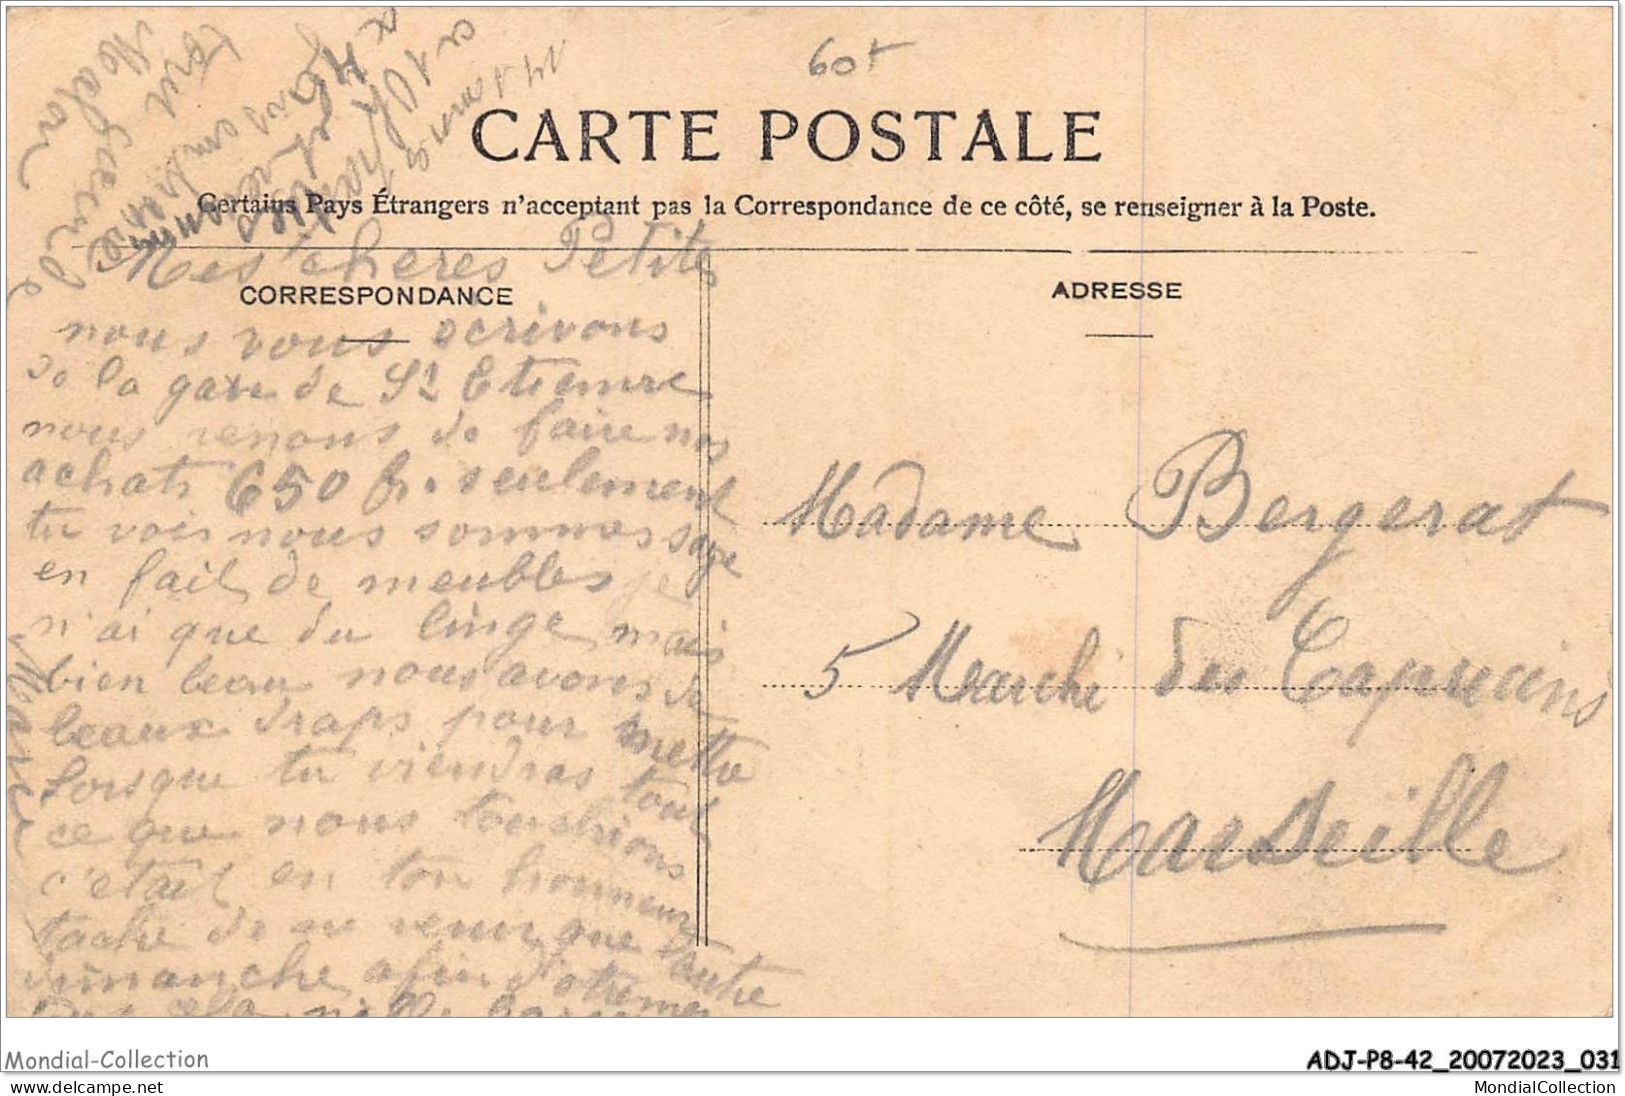 60+
CARTE POSTALE
Certains Pays Étrangers n'acceptant pas la Correspondance de ce côté, se renseigner à la Poste.
CORRESPONDANCE
ADRESSE
Mes chères Petites
nous vous ecrivons
de la gare de St Etienne
nous venons de faire nos
achats 650 fr. seulement
tu vois nous sommes sage
en fait de meubles je
n'ai que du linge mais
bien beau nous avons de
beaux draps pour mettre
lorsque tu viendras tout
ce que nous touchions
c'etait en ton honneur
tache de ne venir que l'autre
dimanche afin d'être
Madame Bergerat
5 Marché des Capucins
Marseille
Marie
Mondial-Collection
ADJ-P8-42_20072023_031
MondialCollection